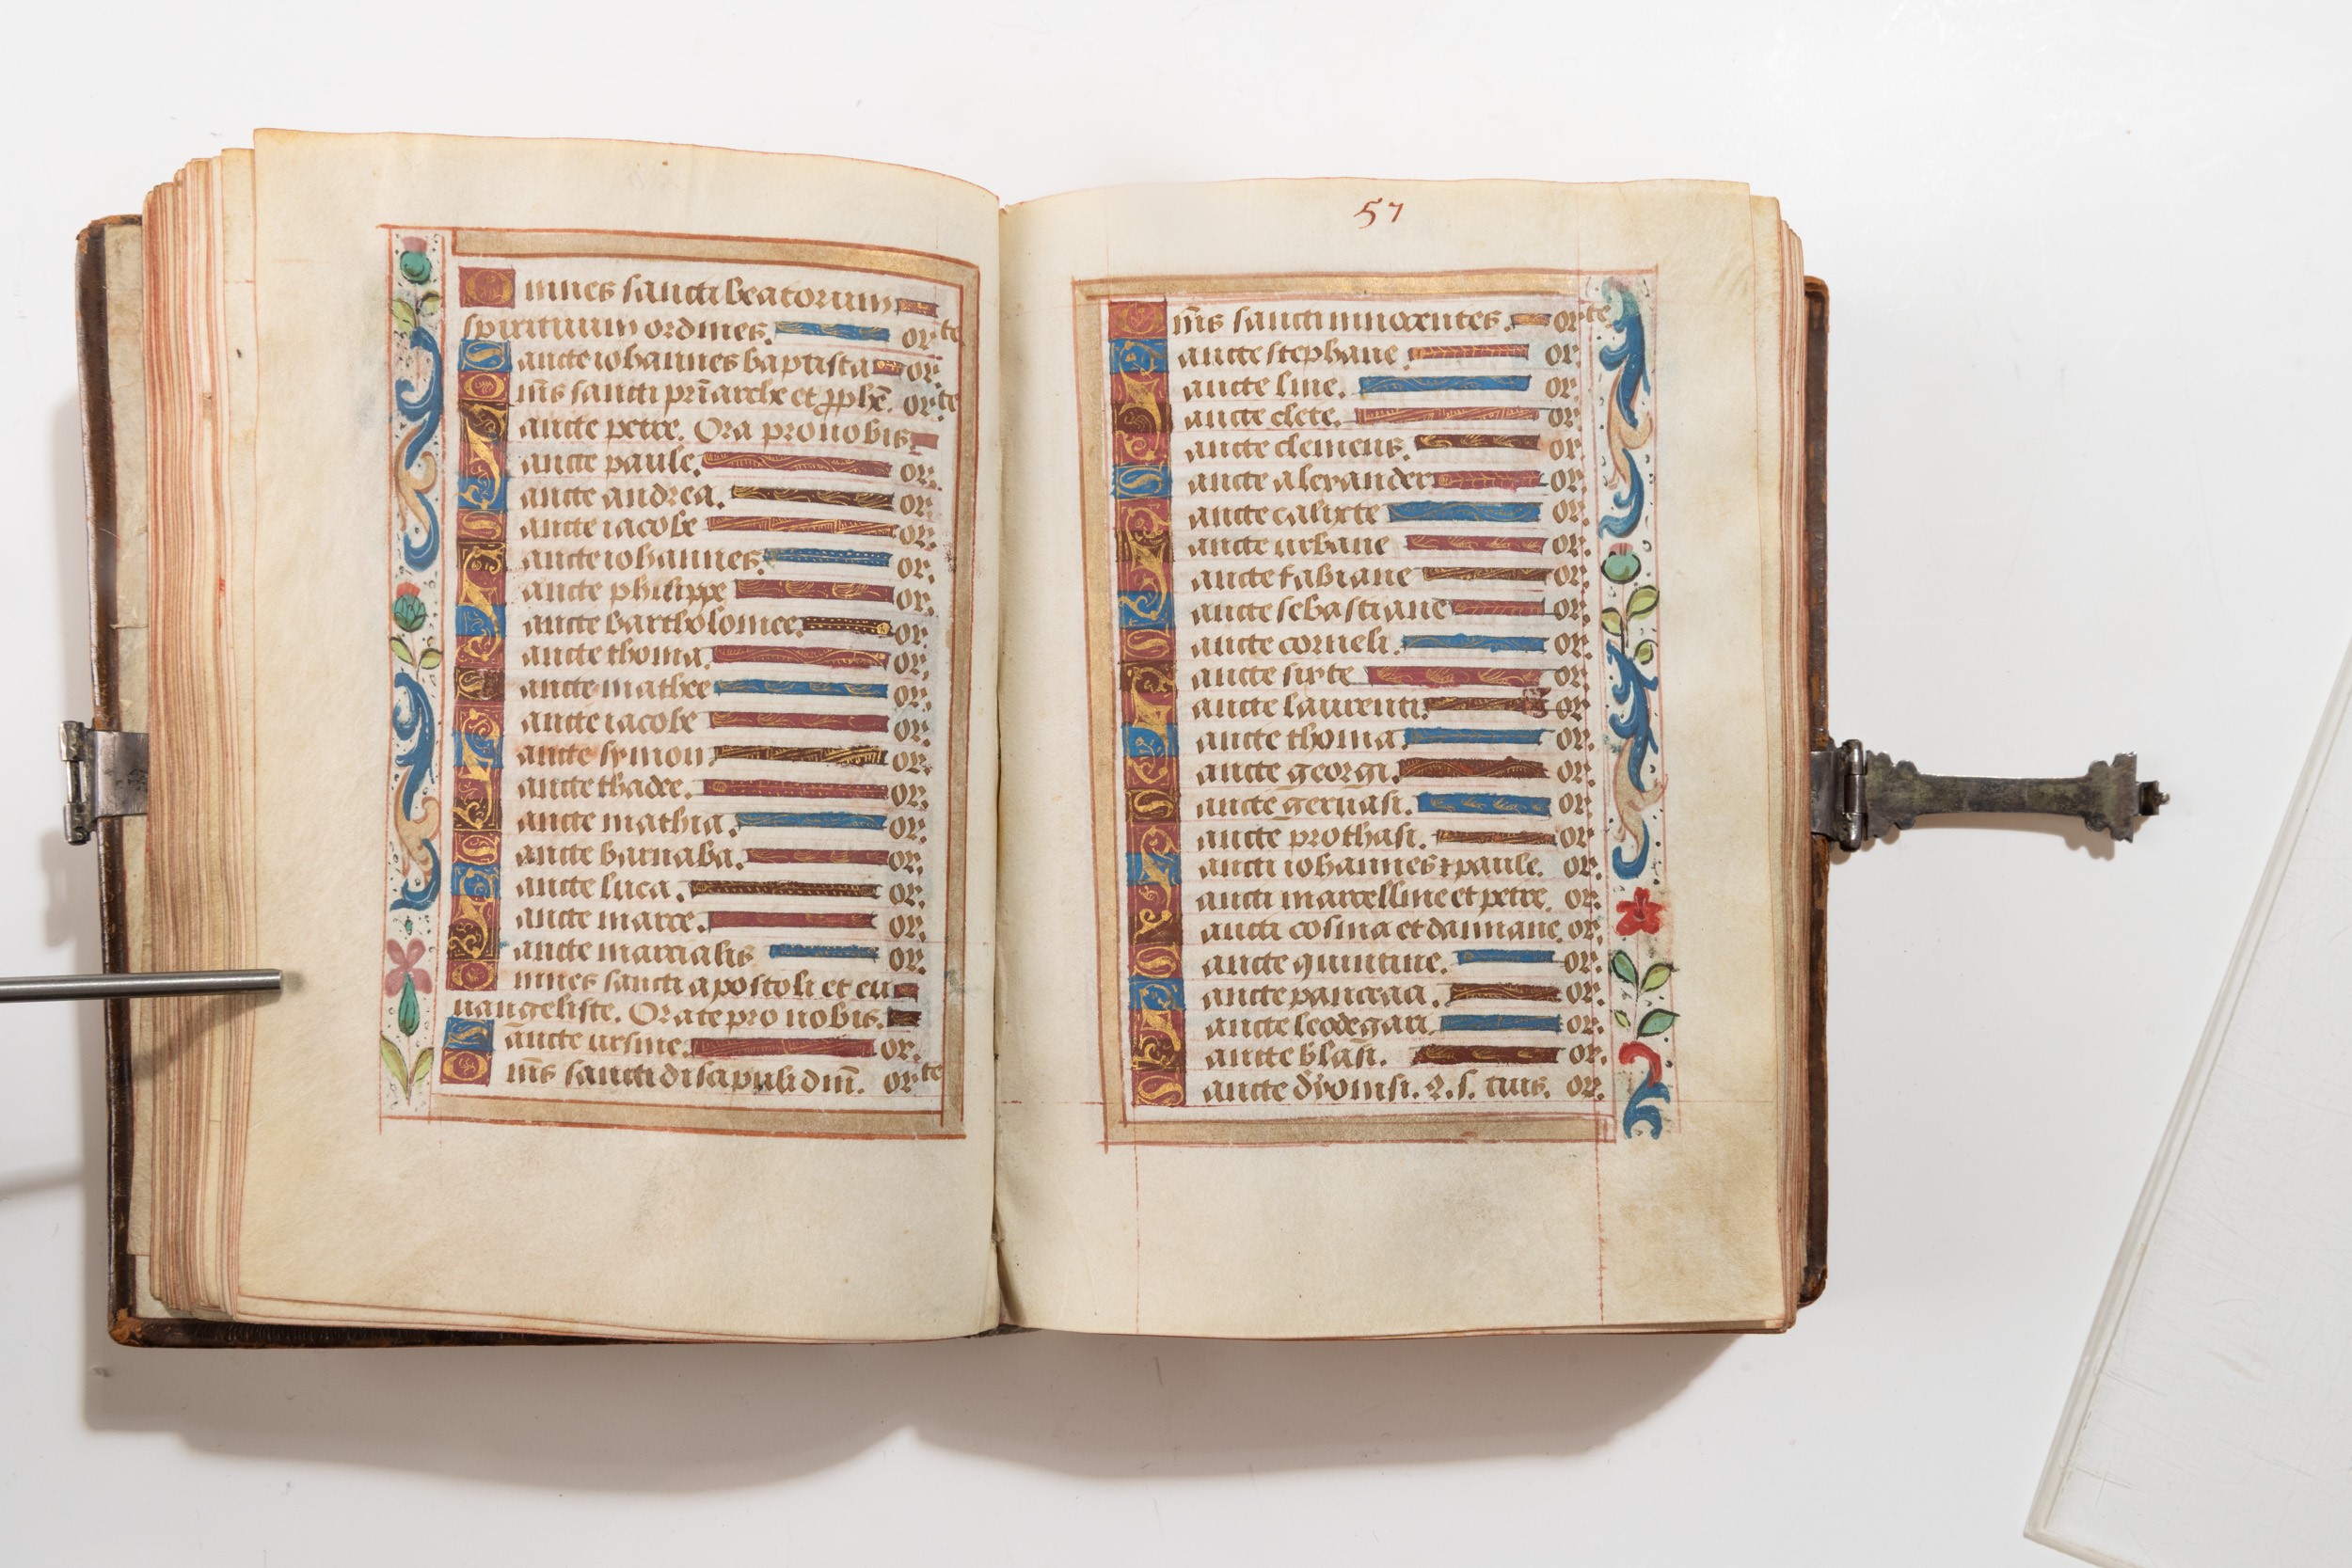 Omnes sancti beatorum
spirituum ordines. orte
Sancte iohannes baptista or.
Om̄s sancti pr̄iarche et ꝓphē. orte
Sancte petre. Ora pro nobis.
Sancte paule. or.
Sancte andrea. or.
Sancte iacobe or.
Sancte iohannes. or.
Sancte philippe or.
Sancte bartholomee. or.
Sancte thoma. or.
Sancte mathee or.
Sancte iacobe or.
Sancte symon. or.
Sancte thadee. or.
Sancte mathia. or.
Sancte barnaba. or.
Sancte luca. or.
Sancte marce. or.
Sancte marcialis or.
Omnes sancti apostoli et eu
uangeliste. Orate pro nobis.
Sancte ursine. or.
Om̄s sancti discipuli dn̄i. orte
57
Om̄s sancti innocentes. orte
Sancte stephane or.
Sancte line. or.
Sancte clete. or
Sancte clemens. or
Sancte alexander or.
Sancte calixte or.
Sancte urbane or.
Sancte fabiane or.
Sancte sebastiane or.
Sancte corneli. or.
Sancte sixte or.
Sancte laurenti. or.
Sancte thoma. or.
Sancte georgi. or.
Sancte geruasi. or
Sancte prothasi. or
Sancti iohannes ⁊ paule. or.
Sancti marcelline et petre. or.
Sancti cosma et damiane. or.
Sancte quintine. or.
Sancte pancraci. or.
Sancte leodegari or.
Sancte blasi. or.
Sancte dyonisi. c. s. tuis. or.